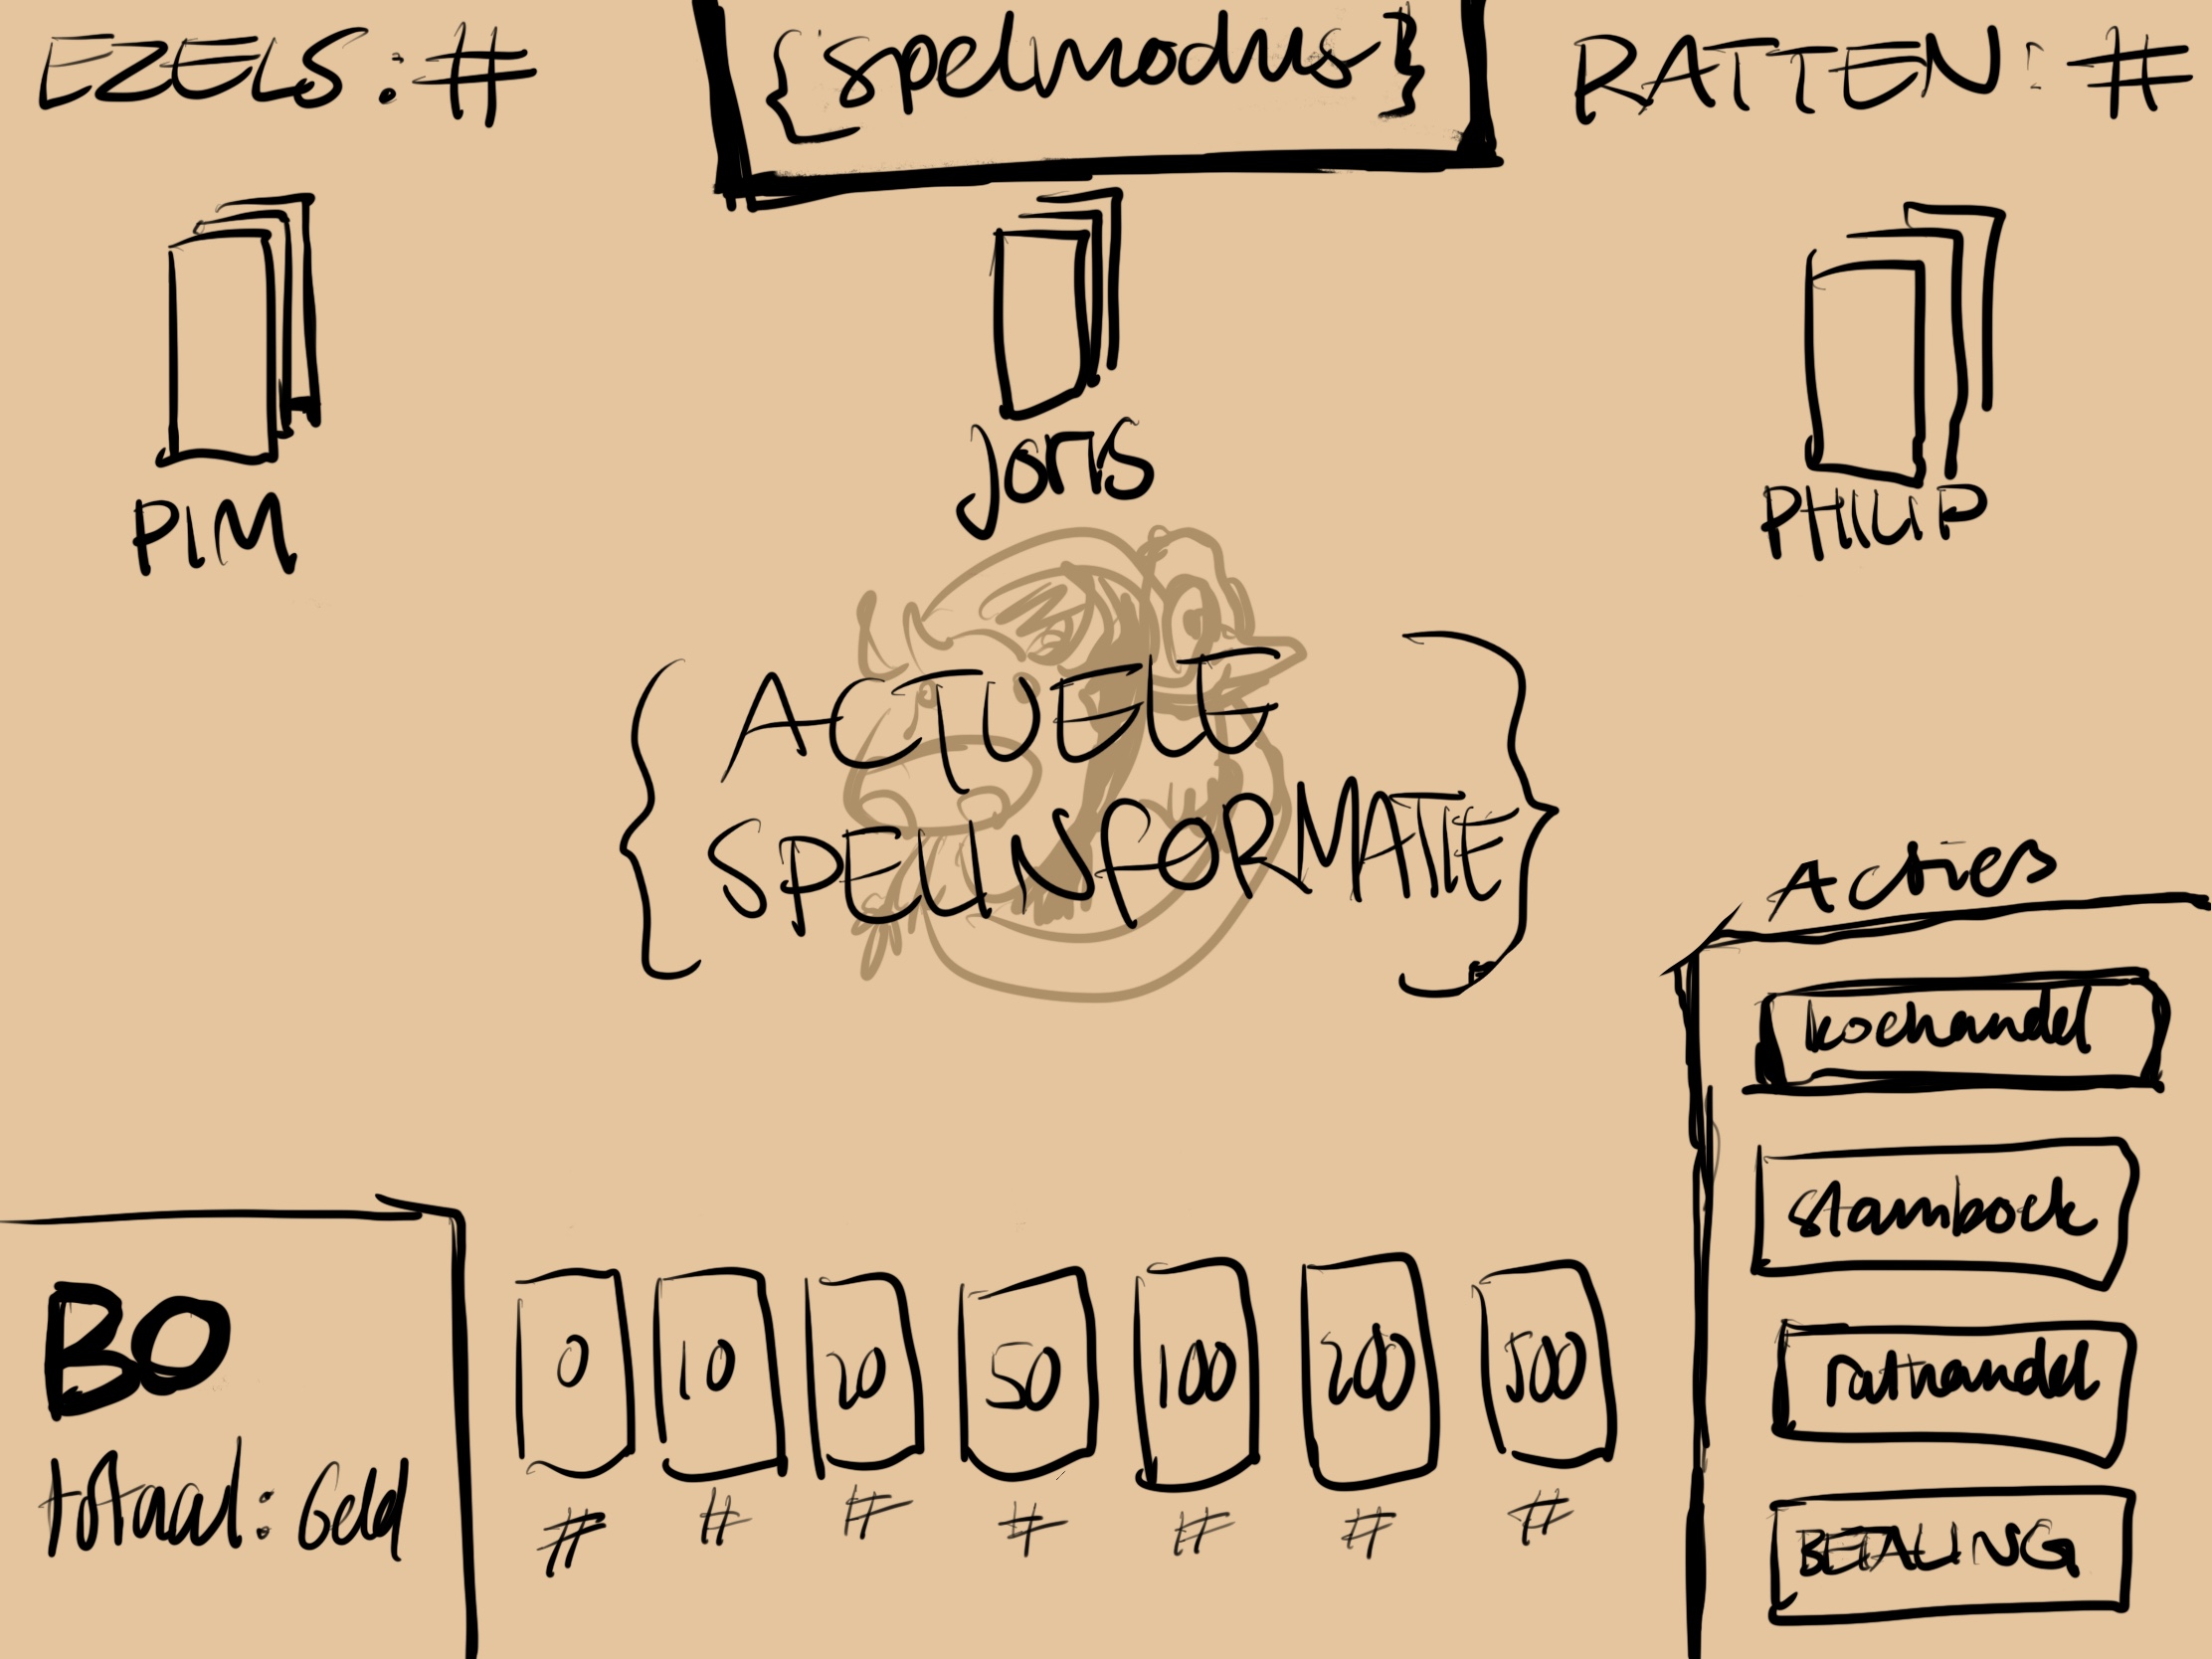 EZELS: #
{spelmodus}
RATTEN: #
PIM
Joris
PHILIP
{ACTUELE
SPELINFORMATIE}
Acties
koehandel
stamboek
rathandel
BETALING
BO
totaal: Geld
0 10 20 50 100 200 500
# # # # # # #